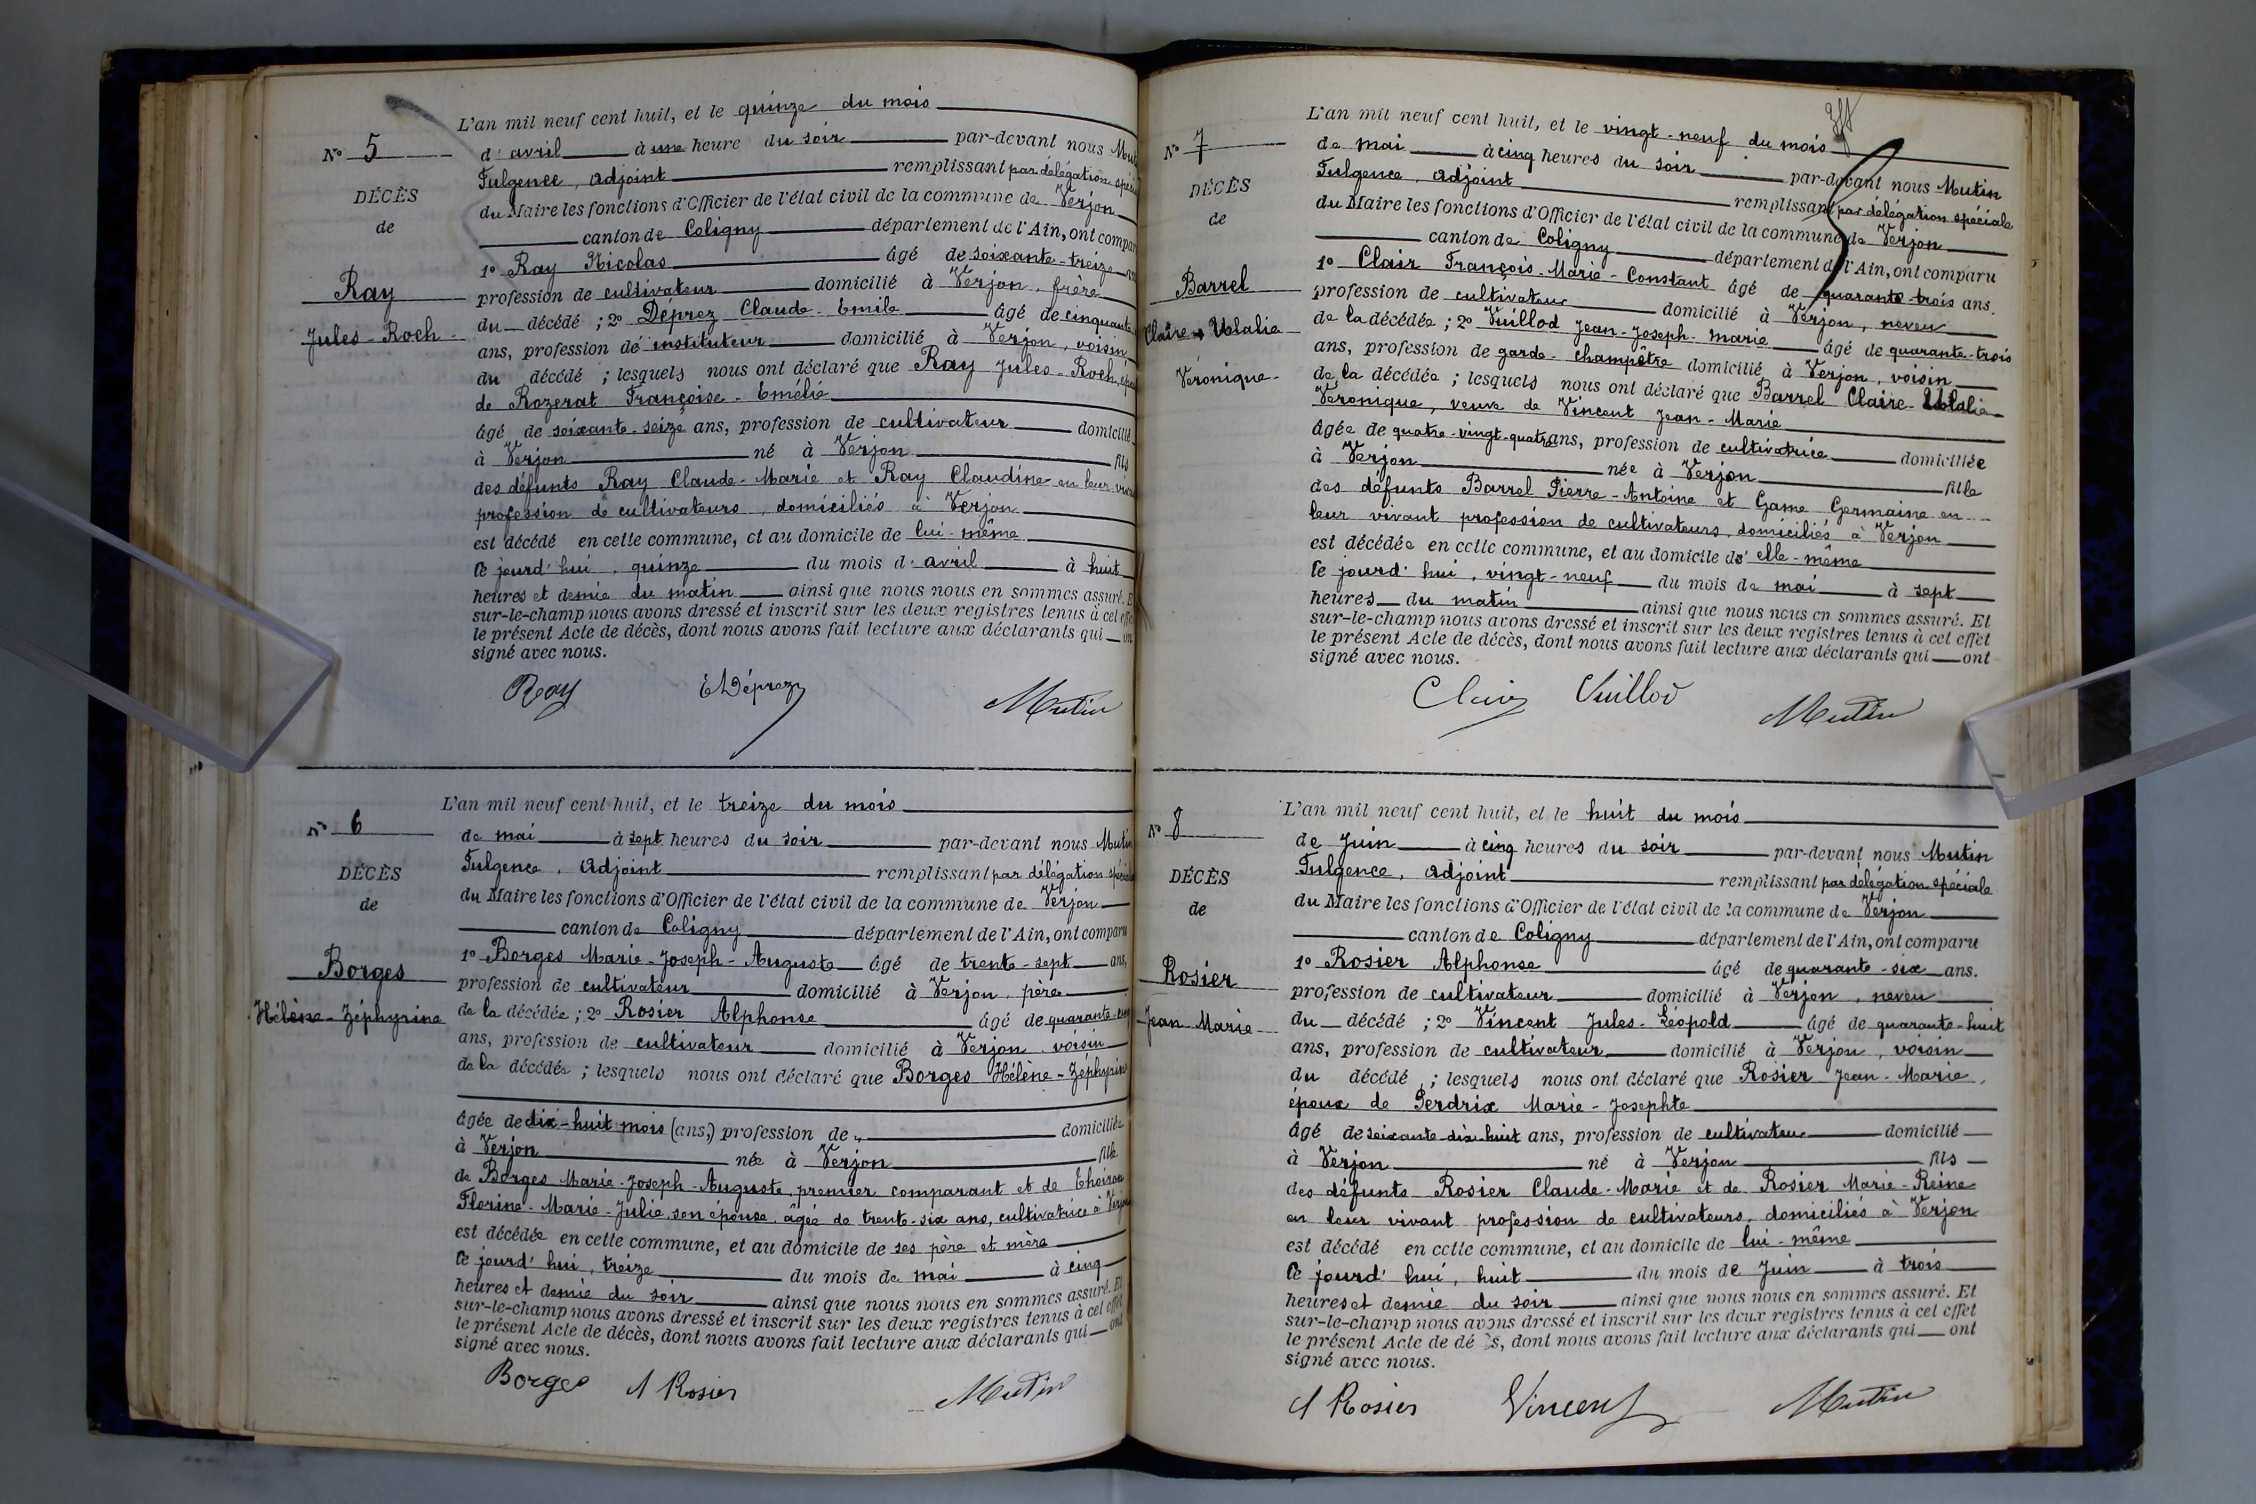 L'an mil neuf cent huit, et le quinze du mois
N° 5
d'avril à une heure du soir par-devant nous
Fulgence, adjoint remplissant par délégation
DÉCÈS
du Maire les fonctions d'Officier de l'état civil de la commune de Verjon
de
canton de Coligny département de l'Ain, ont
1° Ray Nicolas âgé de soixante-treize
Ray
profession de cultivateur domicilié à Verjon, frère
Jules-Roch
du décédé ; 2° Déprez Claude-Emile âgé de cinquante
ans, profession de instituteur domicilié à Verjon, voisin
du décédé ; lesquels nous ont déclaré que Ray Jules-Roch,
de Rozerat Françoise-Emélie
âgé de soixante-seize ans, profession de cultivateur domicilié
à Verjon né à Verjon fils
des défunts Ray Claude-Marie et Ray Claudine en leur
profession de cultivateurs, domiciliés à Verjon
est décédé en cette commune, et au domicile de lui-même
Ce jourd'hui, quinze du mois d'avril à huit
heures et demie du matin ainsi que nous nous en sommes assuré.
sur-le-champ nous avons dressé et inscrit sur les deux registres tenus à cet
le présent Acte de décès, dont nous avons fait lecture aux déclarants qui
signé avec nous.
Ray EDéprez Mutin
L'an mil neuf cent huit, et le treize du mois
N° 6
de mai à sept heures du soir par-devant nous Mutin
Fulgence, adjoint remplissant par délégation
DÉCÈS
du Maire les fonctions d'Officier de l'état civil de la commune de Verjon
de
canton de Coligny département de l'Ain, ont comparu
1° Borges Marie-Joseph-Auguste âgé de trente-sept ans,
Borges
profession de cultivateur domicilié à Verjon, père
Hélène-Zéphyrine
de la décédée ; 2° Rosier Alphonse âgé de quarante
ans, profession de cultivateur domicilié à Verjon, voisin
de la décédée ; lesquels nous ont déclaré que Borges Hélène-Zéphyrine
âgée de dix-huit mois (ans,) profession de domiciliée
à Verjon née à Verjon fille
de Borges Marie-Joseph-Auguste, premier comparant et de
Florine-Marie-Julie, son épouse, âgée de trente-six ans, cultivatrice à Verjon
est décédée en cette commune, et au domicile de ses père et mère
Ce jourd'hui, treize du mois de mai à cinq
heures et demie du soir ainsi que nous nous en sommes assuré. Et
sur-le-champ nous avons dressé et inscrit sur les deux registres tenus à cet effet
le présent Acte de décès, dont nous avons fait lecture aux déclarants qui ont
signé avec nous.
Borges A Rosier Mutin
L'an mil neuf cent huit, et le vingt-neuf du mois
N° 7
de mai à cinq heures du soir par-devant nous Mutin
Fulgence, adjoint remplissant par délégation spéciale
DÉCÈS
du Maire les fonctions d'Officier de l'état civil de la commune de Verjon
de
canton de Coligny département de l'Ain, ont comparu
1° Clair François-Marie-Constant âgé de quarante-trois ans.
Barrel
profession de cultivateur domicilié à Verjon, neveu
Claire-Ulalie
de la décédée ; 2° Vuillod Jean-Joseph-Marie âgé de quarante-trois
ans, profession de garde-champêtre domicilié à Verjon, voisin
Véronique
de la décédée ; lesquels nous ont déclaré que Barrel Claire-Ulalie
Véronique, veuve de Vincent Jean-Marie
âgée de quatre-vingt-quatre ans, profession de cultivatrice domiciliée
à Verjon née à Verjon fille
des défunts Barrel Pierre-Antoine et Game Germaine en
leur vivant profession de cultivateurs, domiciliés à Verjon
est décédée en cette commune, et au domicile d'elle-même
Ce jourd'hui, vingt-neuf du mois de mai à sept
heures du matin ainsi que nous nous en sommes assuré. Et
sur-le-champ nous avons dressé et inscrit sur les deux registres tenus à cet effet
le présent Acte de décès, dont nous avons fait lecture aux déclarants qui ont
signé avec nous.
Clair Vuillod Mutin
L'an mil neuf cent huit, et le huit du mois
N° 8
de Juin à cinq heures du soir par-devant nous Mutin
Fulgence, adjoint remplissant par délégation spéciale
DÉCÈS
du Maire les fonctions d'Officier de l'état civil de la commune de Verjon
de
canton de Coligny département de l'Ain, ont comparu
1° Rosier Alphonse âgé de quarante-six ans.
Rosier
profession de cultivateur domicilié à Verjon, neveu
Jean Marie
du décédé ; 2° Vincent Jules-Léopold âgé de quarante-huit
ans, profession de cultivateur domicilié à Verjon, voisin
du décédé ; lesquels nous ont déclaré que Rosier Jean-Marie,
époux de Perdrix Marie-Josephte
âgé de soixante-dix-huit ans, profession de cultivateur domicilié
à Verjon né à Verjon fils
des défunts Rosier Claude-Marie et de Rosier Marie-Reine
en leur vivant profession de cultivateurs, domiciliés à Verjon
est décédé en cette commune, et au domicile de lui-même
Ce jourd'hui, huit du mois de Juin à trois
heures et demie du soir ainsi que nous nous en sommes assuré. Et
sur-le-champ nous avons dressé et inscrit sur les deux registres tenus à cet effet
le présent Acte de dé s, dont nous avons fait lecture aux déclarants qui ont
signé avec nous.
A Rosier Vincent Mutin